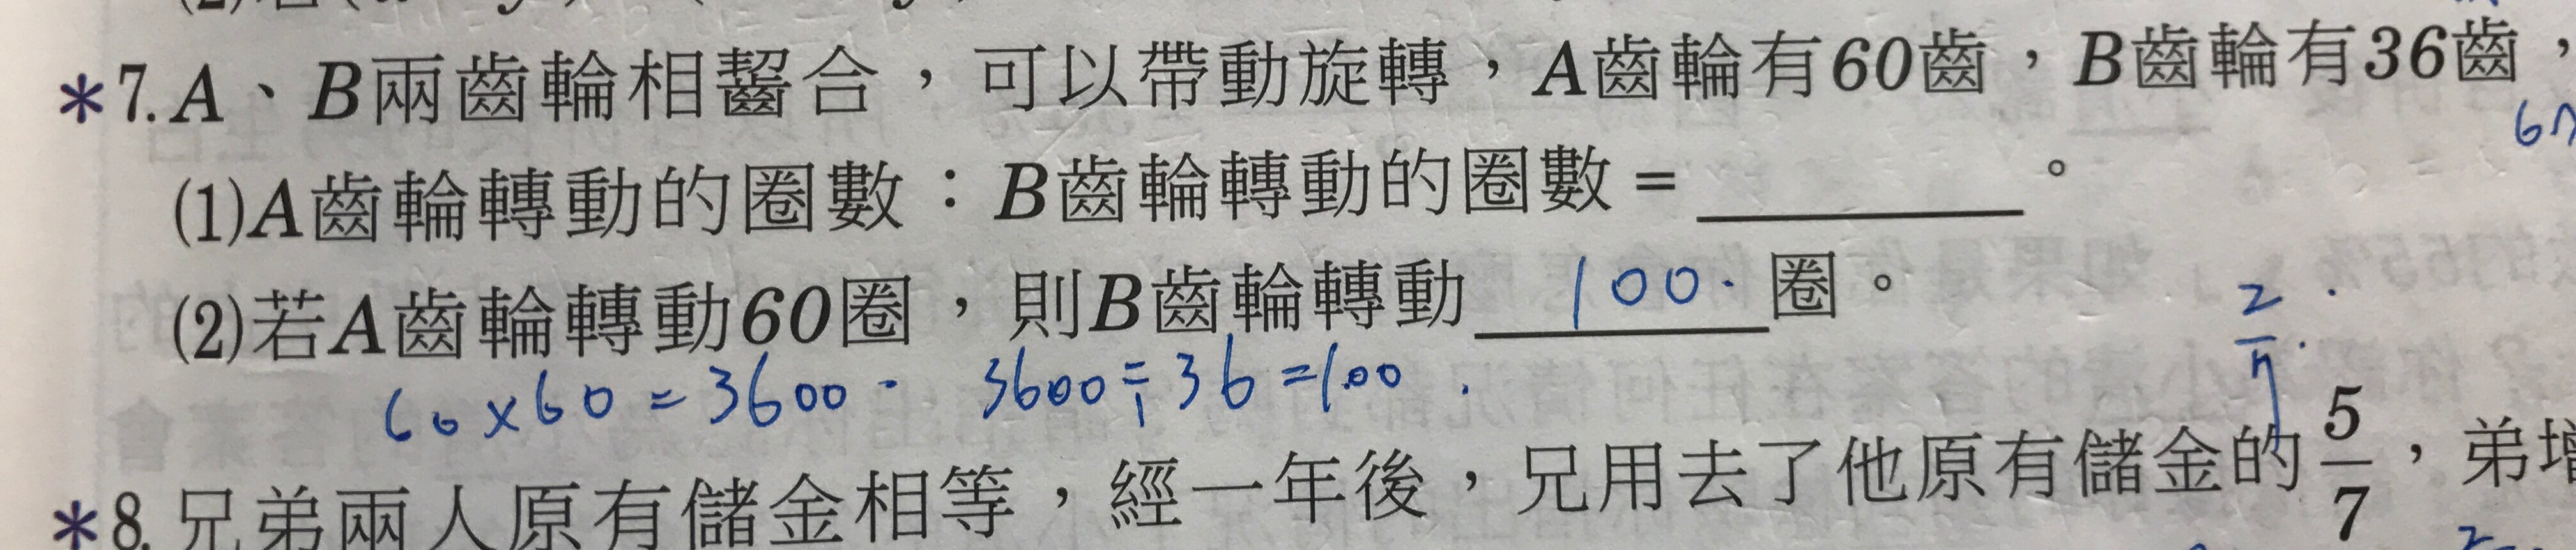 *7.A、B兩齒輪相齧合，可以帶動旋轉，A齒輪有60齒，B齒輪有36齒，
(1)A齒輪轉動的圈數：B齒輪轉動的圈數=______。
(2)若A齒輪轉動60圈，則B齒輪轉動 100. 圈。
60×60=3600. 3600÷36=100.
*8.兄弟兩人原有儲金相等，經一年後，兄用去了他原有儲金的5/7，弟增